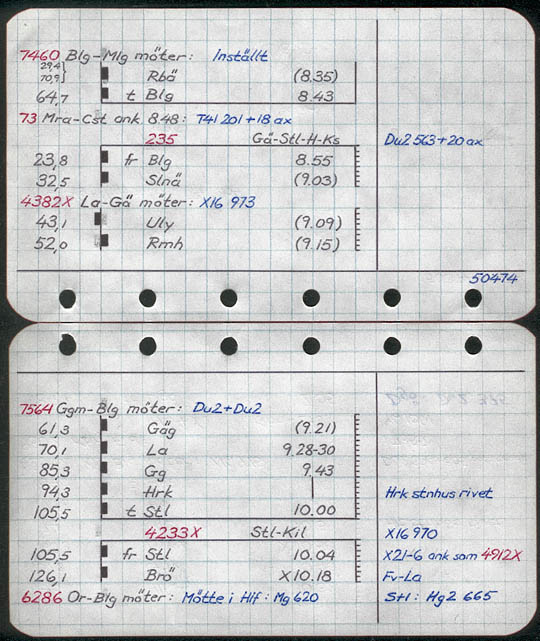 7460 Blg-Mlg möter: Inställt
29,4
70,9 Rbä (8.35)
64,7 t Blg 8.43
73 Mra-Cst ank. 8.48: T41 201+18 ax
235 Gä-Stl-H-Ks Du2 563+20 ax
23,8 fr Blg 8.55
32,5 Slnä (9.03)
4382X La-Gä möter: X16 973
43,1 Uly (9.09)
52,0 Rmh (9.15)
50474
7564 Ggm-Blg möter: Du2+Du2
61,3 Gäg (9.21)
70,1 La 9.28-30
85,3 Gg 9.43
94,3 Hrk | Hrk stnhus rivet
105,5 t Stl 10.00
4233X Stl-Kil X16 970
105,5 fr Stl 10.04 X21-6 ank som 4912X
126,1 Brö X10.18 Fv-La
6286 Or-Blg möter: Mötte i Hlf: Mg 620 Stl: Hg2 665